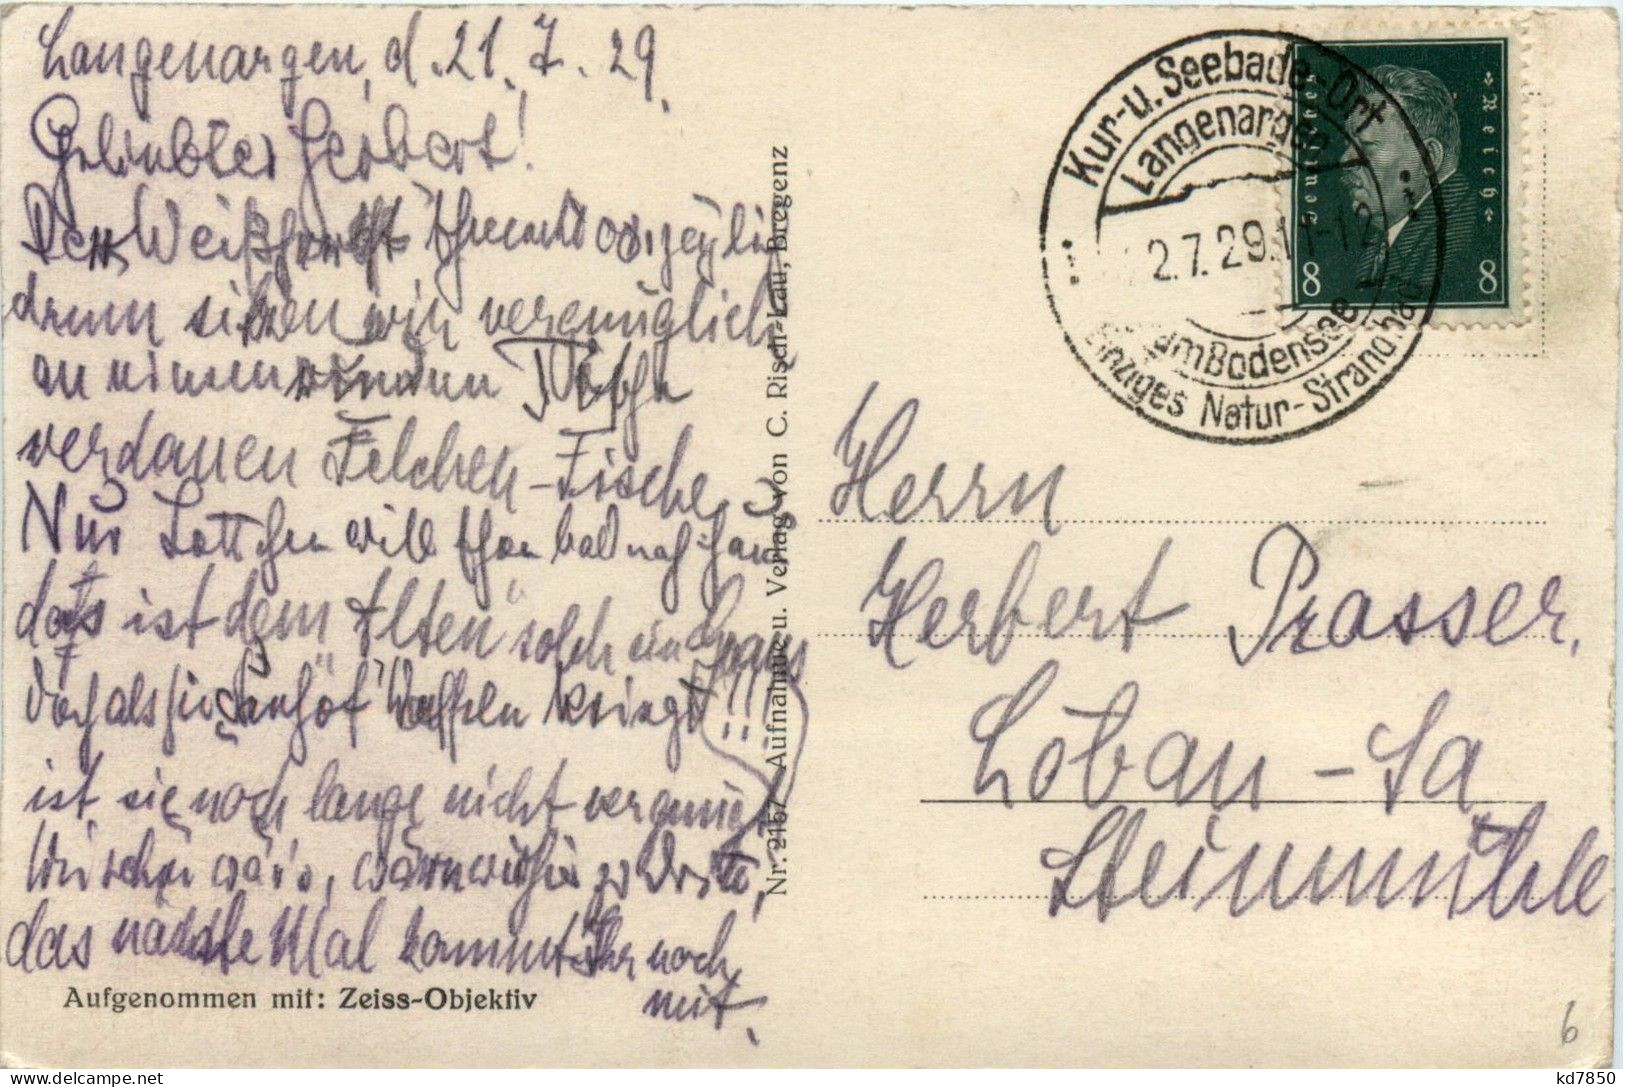 Langenargen, d. 21. 7. 29.
Geliebter Herbert!
Der Weißherbst schmeckt vorzüglich
drum sitzen wir vergnüglich
an einem runden Tische
verdauen Felchen-Fische
Nur Lottchen will schon bald nach Haus
das ist dem "Alten" solch ein Graus
doch als sie Waffeln kriegt!!!
ist sie noch lange nicht vergnügt
Wie schön wär's, wärn wir hier zu
das nächste Mal kommt Ihr noch
mit.
Aufgenommen mit: Zeiss-Objektiv
Nr. 2157 Aufnahme u. Verlag von C. Risch-Lau, Bregenz
Kur-u. Seebade-Ort
Langenargen
2.7.29.11-12
am Bodensee
Einziges Natur-Strandbad
Deutsches Reich
8 8
Herrn
Herbert Prasser.
Löbau - Sa
Steinmühle
6
kd7850